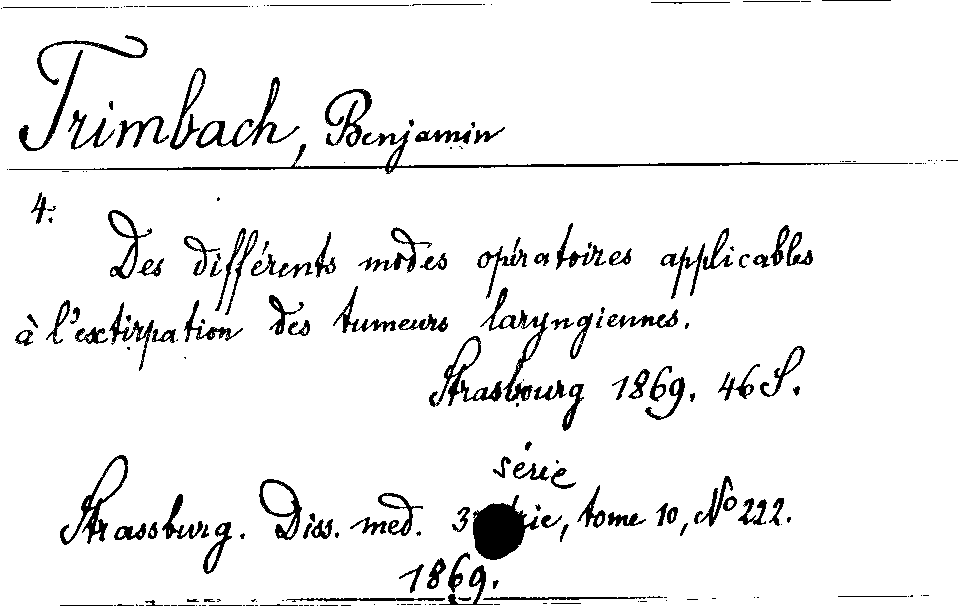 Trimbach, Benjamin
4.
Des différents modes opératoires applicables
à l'extirpation des tumeurs laryngiennes.
Strasbourg 1869. 46 S.
série
Strassburg. Diss. med. tome 10, No 222.
1869.